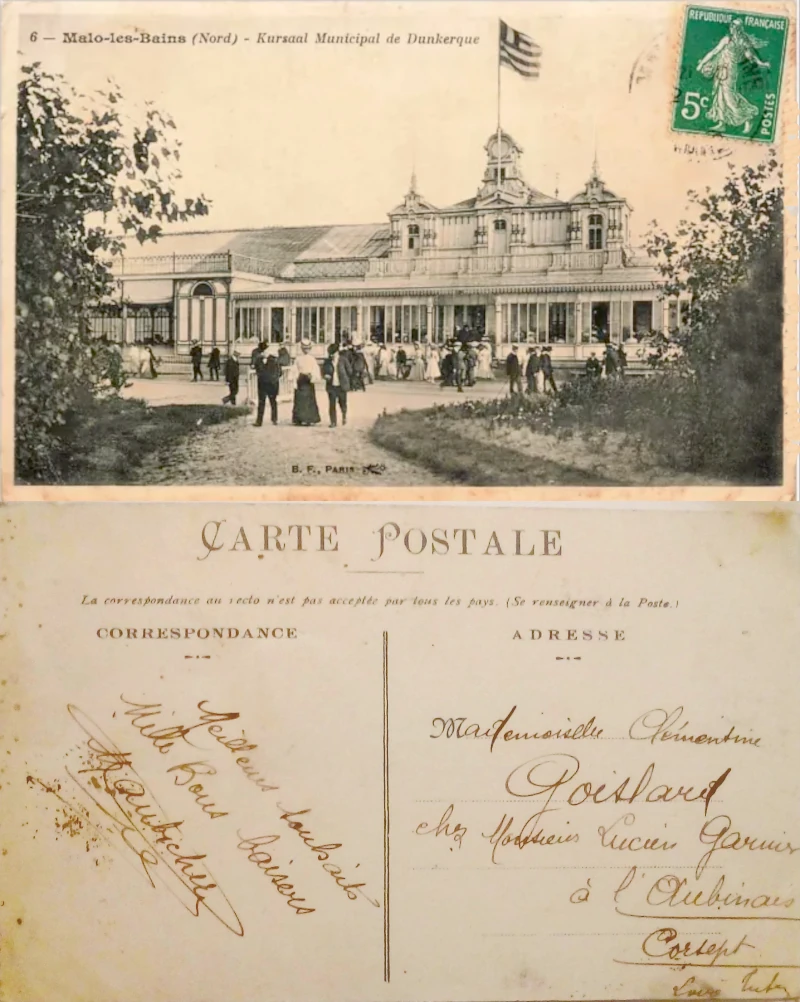 6 — Malo-les-Bains (Nord) - Kursaal Municipal de Dunkerque
REPUBLIQUE FRANÇAISE
5c
POSTES
B. F., PARIS
CARTE POSTALE
La correspondance au recto n'est pas acceptée par tous les pays. (Se renseigner à la Poste.)
CORRESPONDANCE
Meilleurs souhaits
Mille Bons baisers
ADRESSE
Mademoiselle Clémentine
Goislard
chez Monsieur Lucien Garnier
à l'Aubinais
Corsept